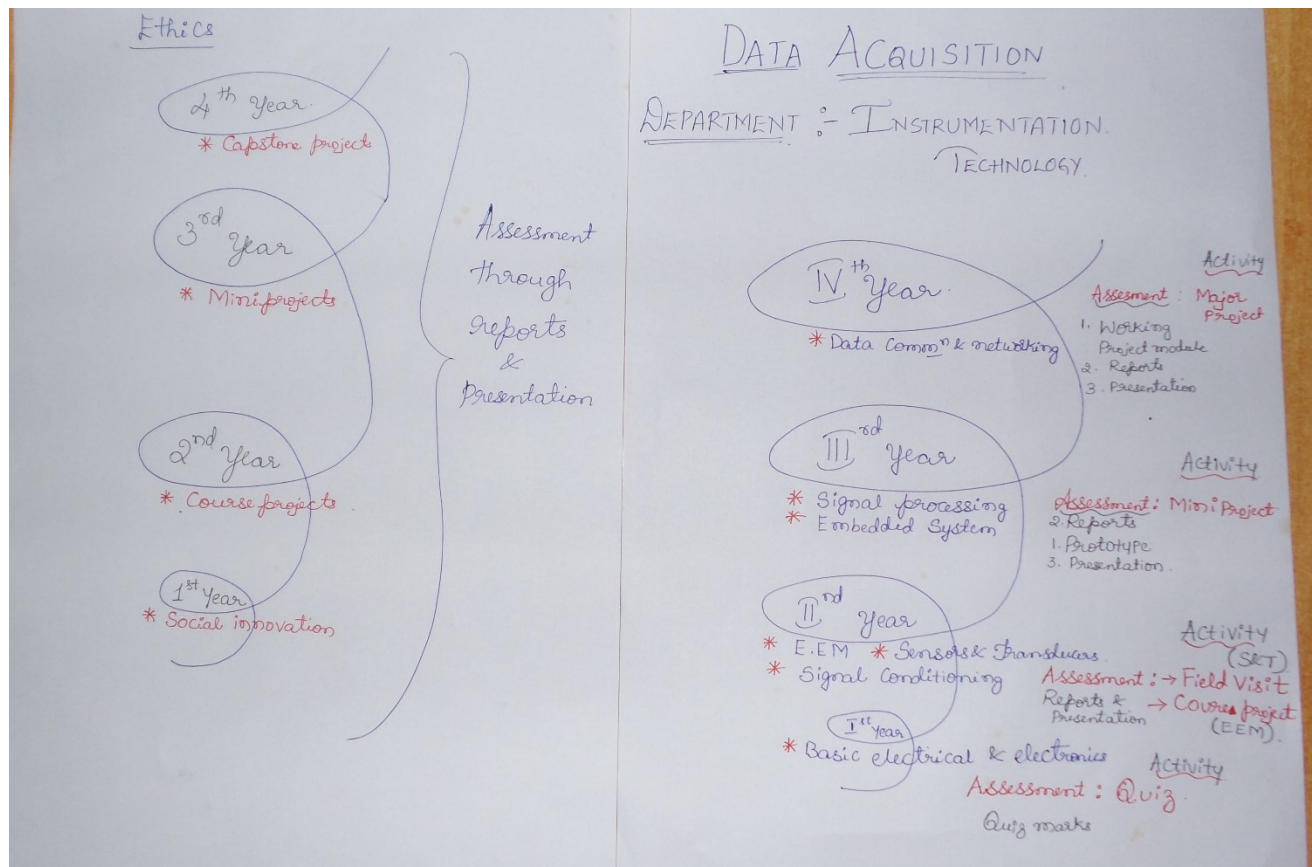 Ethics
4th Year.
* Capstone project
3rd Year
* Mini projects
2nd Year
* Course projects
1st Year
* Social innovation
Assessment
through
reports
&
Presentation
DATA ACQUISITION
DEPARTMENT :- INSTRUMENTATION.
TECHNOLOGY.
IVth Year.
* Data Commn & networking
Activity
Assesment : Major
Project
1. Working
Project module
2. Reports
3. Presentation
IIIrd Year
* Signal processing
* Embedded System
Activity
Assessment : Mini Project
2. Reports
1. Prototype
3. Presentation.
IInd Year
* E.EM * Sensors & Transducers.
* Signal Conditioning
Activity
(S&T)
Assessment : → Field Visit
Reports & → Course project
Presentation (EEM).
Ist Year
* Basic electrical & electronics
Activity
Assessment : Quiz.
Quiz marks